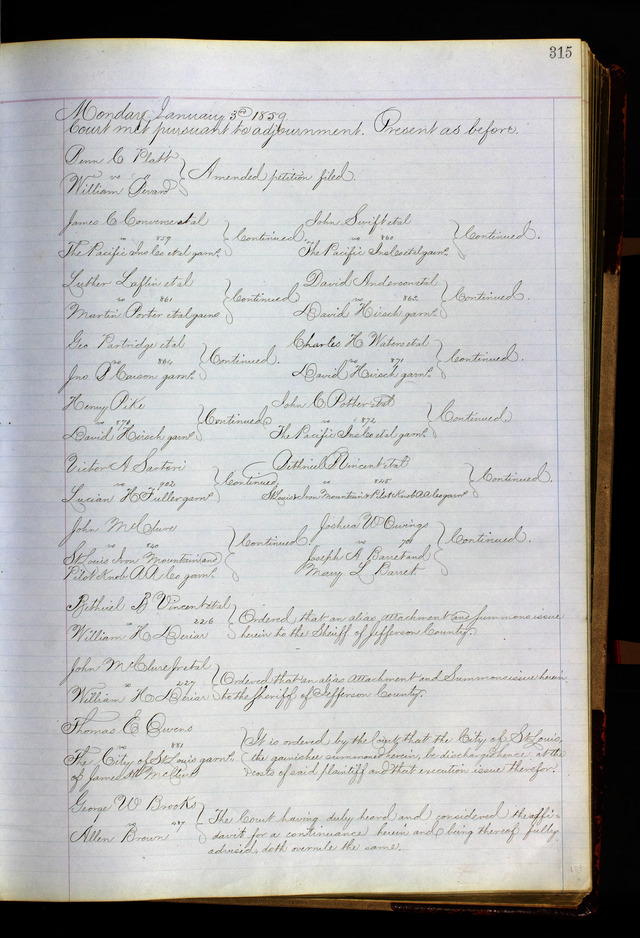 315
Monday January 3rd 1859
Court met pursuant to adjournment. Present as before.
Penn C Platt
vs
William Sevard
Amended petition filed.
James C Converse et al
vs 859
The Pacific Ins Co et al garn.
Continued
John Swift et al
vs 860
The Pacific Ins Co et al garn.
Continued.
Luther Laflin et al
vs 861
Martin Porter et al garns
Continued
David Anderson et al
vs 862
David Hirsch garn.
Continued.
Geo Partridge et al
vs 864
Jno S Carson garn.
Continued.
Charles H Waters et al
vs 871
David Hirsch garn.
Continued.
Henry Pike
vs 870
David Hirsch garn.
Continued
John C Potter et al
vs 872
The Pacific Ins Co et al garn.
Continued.
Victor A Sartori
902
Lucian H Fuller garn.
Continued
Bethuel B Vincent et al
vs 845
St Louis Iron Mountain & Pilot Knob garn
Continued.
John McClure
vs 840
St Louis Iron Mountain and
Pilot Knob R R Co garn.
Continued
Joshua W Owings
vs
Joseph A Barret and
Mary L Barret
Continued.
Bethuel B Vincent et al
226
William H
Ordered that an alias attachment and summons issue
herein to the Sheriff of Jefferson County.
John McClure jr et al
vs 227
William H
Ordered that an alias attachment and Summons issue herein
to the Sheriff of Jefferson County.
Thomas C Owens
vs 881
The City of St Louis garn.
of James McClure
It is ordered by the Court that the City of St Louis,
the garnishee summoned herein, be discharged hence at the
costs of said plaintiff and that execution issue therefor.
George W Brooks
vs 487
Allen Brown
The Court having duly heard and considered the affi-
davit for a continuance herein and being thereof fully
advised, doth overrule the same.